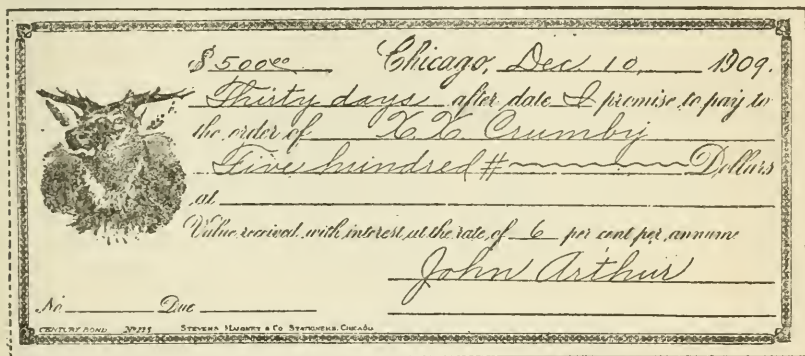 $500.00 Chicago, Dec 10, 1909.
Thirty days after date I promise to pay to
the order of X.X. Crumby
Five hundred # Dollars
at
Value received with interest at the rate of 6 per cent per annum
John Arthur
No. Due
CENTURY BOND Nº 225 STEVENS MALONEY & CO. STATIONERS, CHICAGO